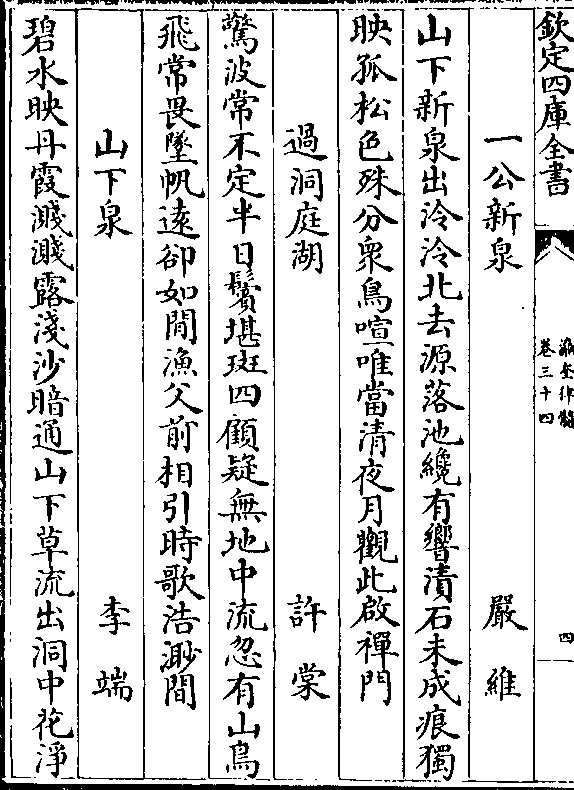 欽定四庫全書
瀛奎律髓
卷三十四
四
一公新泉 嚴維
山下新泉出泠泠北去源落池纔有響漬石未成痕獨
映孤松色殊分衆鳥喧唯當清夜月觀此啟禪門
過洞庭湖 許棠
驚波常不定半日鬢堪斑四顧疑無地中流忽有山鳥
飛常畏墜帆遠卻如閒漁父前相引時歌浩渺間
山下泉 李端
碧水映丹霞濺濺露淺沙暗通山下草流出洞中花淨